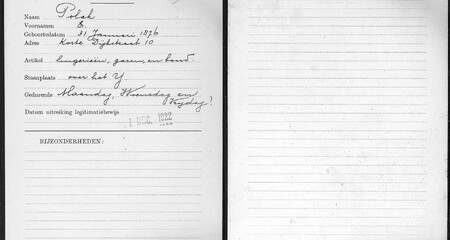 Naam Polak
Voornamen E.
Geboortedatum 31 Januari 1876
Adres Korte Dijkstraat 10
Artikel lingerieën, garen, en band.
Staanplaats over het Y.
Gedurende Maandag, Woensdag en
Vrijdag?
Datum uitreiking legitimatiebewijs
1 DEC. 1922
BIJZONDERHEDEN: